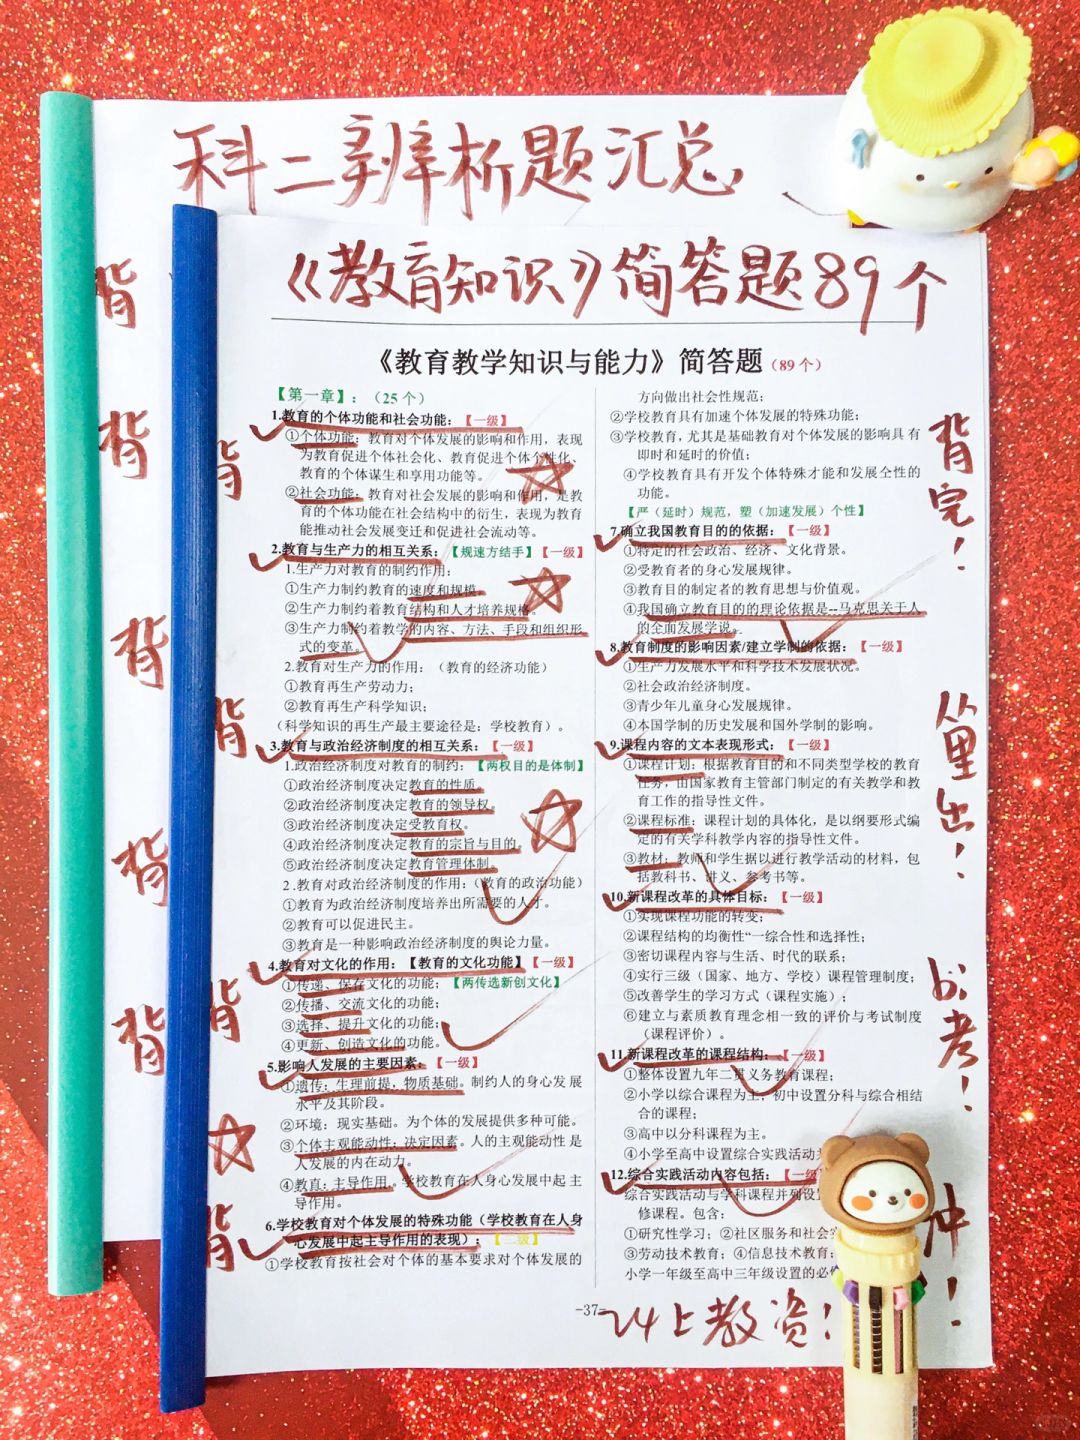 科二辨析题汇总
《教育知识》简答题89个
《教育教学知识与能力》简答题(89个)
【第一章】:(25个)
1.教育的个体功能和社会功能:【一级】
①个体功能:教育对个体发展的影响和作用,表现
为教育促进个体社会化、教育促进个体个性化、
教育的个体谋生和享用功能等。
②社会功能:教育对社会发展的影响和作用,是教
育的个体功能在社会结构中的衍生,表现为教育
能推动社会发展变迁和促进社会流动等。
2.教育与生产力的相互关系:【规速方结手】【一级】
1.生产力对教育的制约作用:
①生产力制约教育的速度和规模。
②生产力制约着教育结构和人才培养规格。
③生产力制约着教学的内容、方法、手段和组织形
式的变革。
2.教育对生产力的作用:(教育的经济功能)
①教育再生产劳动力;
②教育再生产科学知识;
(科学知识的再生产最主要途径是:学校教育)。
3.教育与政治经济制度的相互关系:【一级】
1.政治经济制度对教育的制约:【两权目的是体制】
①政治经济制度决定教育的性质。
②政治经济制度决定教育的领导权。
③政治经济制度决定受教育权。
④政治经济制度决定教育的宗旨与目的。
⑤政治经济制度决定教育管理体制。
2.教育对政治经济制度的作用:(教育的政治功能)
①教育为政治经济制度培养出所需要的人才。
②教育可以促进民主。
③教育是一种影响政治经济制度的舆论力量。
4.教育对文化的作用:【教育的文化功能】【一级】
①传递、保存文化的功能;【两传选新创文化】
②传播、交流文化的功能;
③选择、提升文化的功能;
④更新、创造文化的功能。
5.影响人发展的主要因素:【一级】
①遗传:生理前提,物质基础。制约人的身心发展
水平及其阶段。
②环境:现实基础。为个体的发展提供多种可能。
③个体主观能动性:决定因素。人的主观能动性是
人发展的内在动力。
④教育:主导作用。学校教育在人身心发展中起主
导作用。
6.学校教育对个体发展的特殊功能(学校教育在人身
心发展中起主导作用的表现):【二级】
①学校教育按社会对个体的基本要求对个体发展的
方向做出社会性规范;
②学校教育具有加速个体发展的特殊功能;
③学校教育,尤其是基础教育对个体发展的影响具有
即时和延时的价值;
④学校教育具有开发个体特殊才能和发展个性的
功能。
【严(延时)规范,塑(加速发展)个性】
7.确立我国教育目的的依据:【一级】
①特定的社会政治、经济、文化背景。
②受教育者的身心发展规律。
③教育目的制定者的教育思想与价值观。
④我国确立教育目的的理论依据是--马克思关于人
的全面发展学说。
8.教育制度的影响因素/建立学制的依据:【一级】
①生产力发展水平和科学技术发展状况。
②社会政治经济制度。
③青少年儿童身心发展规律。
④本国学制的历史发展和国外学制的影响。
9.课程内容的文本表现形式:【一级】
①课程计划:根据教育目的和不同类型学校的教育
任务,由国家教育主管部门制定的有关教学和教
育工作的指导性文件。
②课程标准:课程计划的具体化,是以纲要形式编
定的有关学科教学内容的指导性文件。
③教材:教师和学生据以进行教学活动的材料,包
括教科书、讲义、参考书等。
10.新课程改革的具体目标:【一级】
①实现课程功能的转变;
②课程结构的均衡性"一综合性和选择性;
③密切课程内容与生活、时代的联系;
④实行三级(国家、地方、学校)课程管理制度;
⑤改善学生的学习方式(课程实施);
⑥建立与素质教育理念相一致的评价与考试制度
(课程评价)。
11.新课程改革的课程结构:【一级】
①整体设置九年二贯义务教育课程;
②小学以综合课程为主,初中设置分科与综合相结
合的课程;
③高中以分科课程为主。
④小学至高中设置综合实践活动
12.综合实践活动内容包括:【一级
综合实践活动与学科课程并列设置
修课程。包含:
①研究性学习;②社区服务和社会实
③劳动技术教育;④信息技术教育;
小学一年级至高中三年级设置的必修
-37-
24上教资!
背
背
背
背
背
背
背
背
背
背完!
从里出!
必考!
冲!